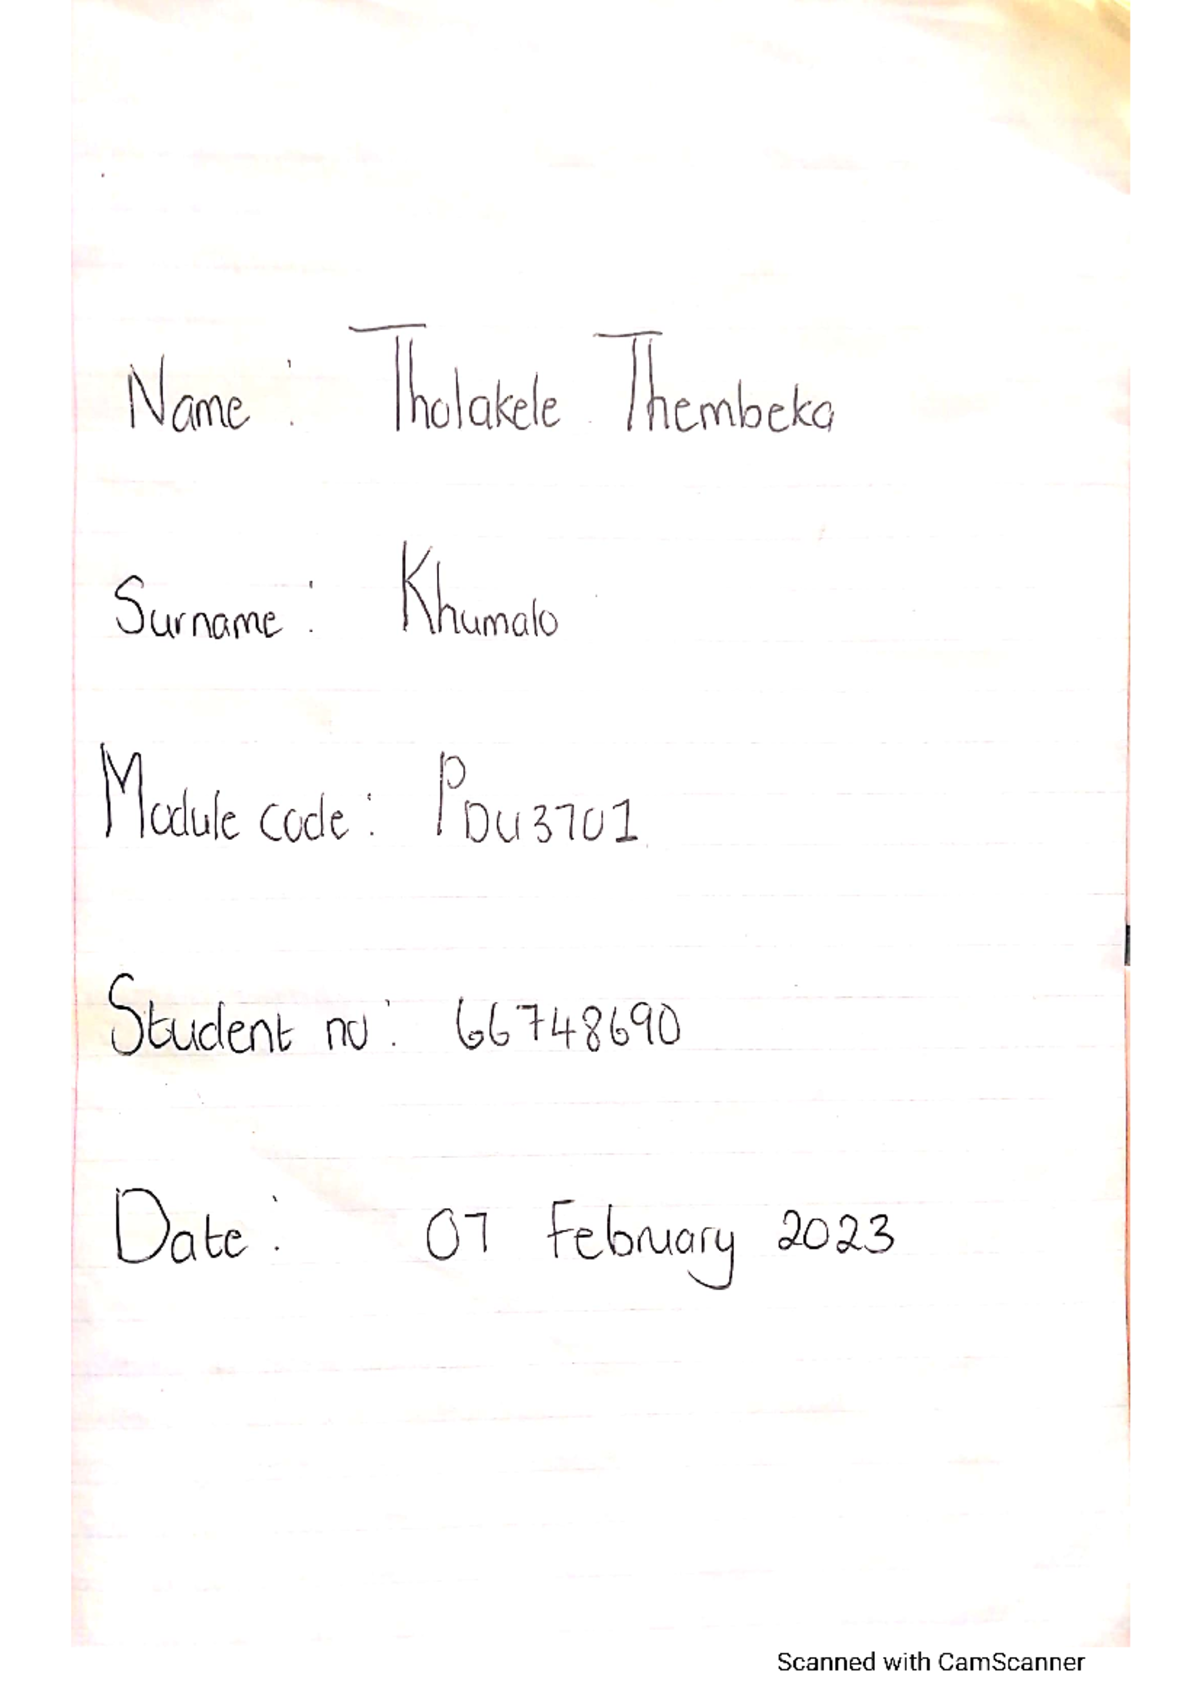 Name : Tholakele Thembeka
Surname : Khumalo
Module code : PDU3701
Student no : 66748690
Date : 07 February 2023
Scanned with CamScanner